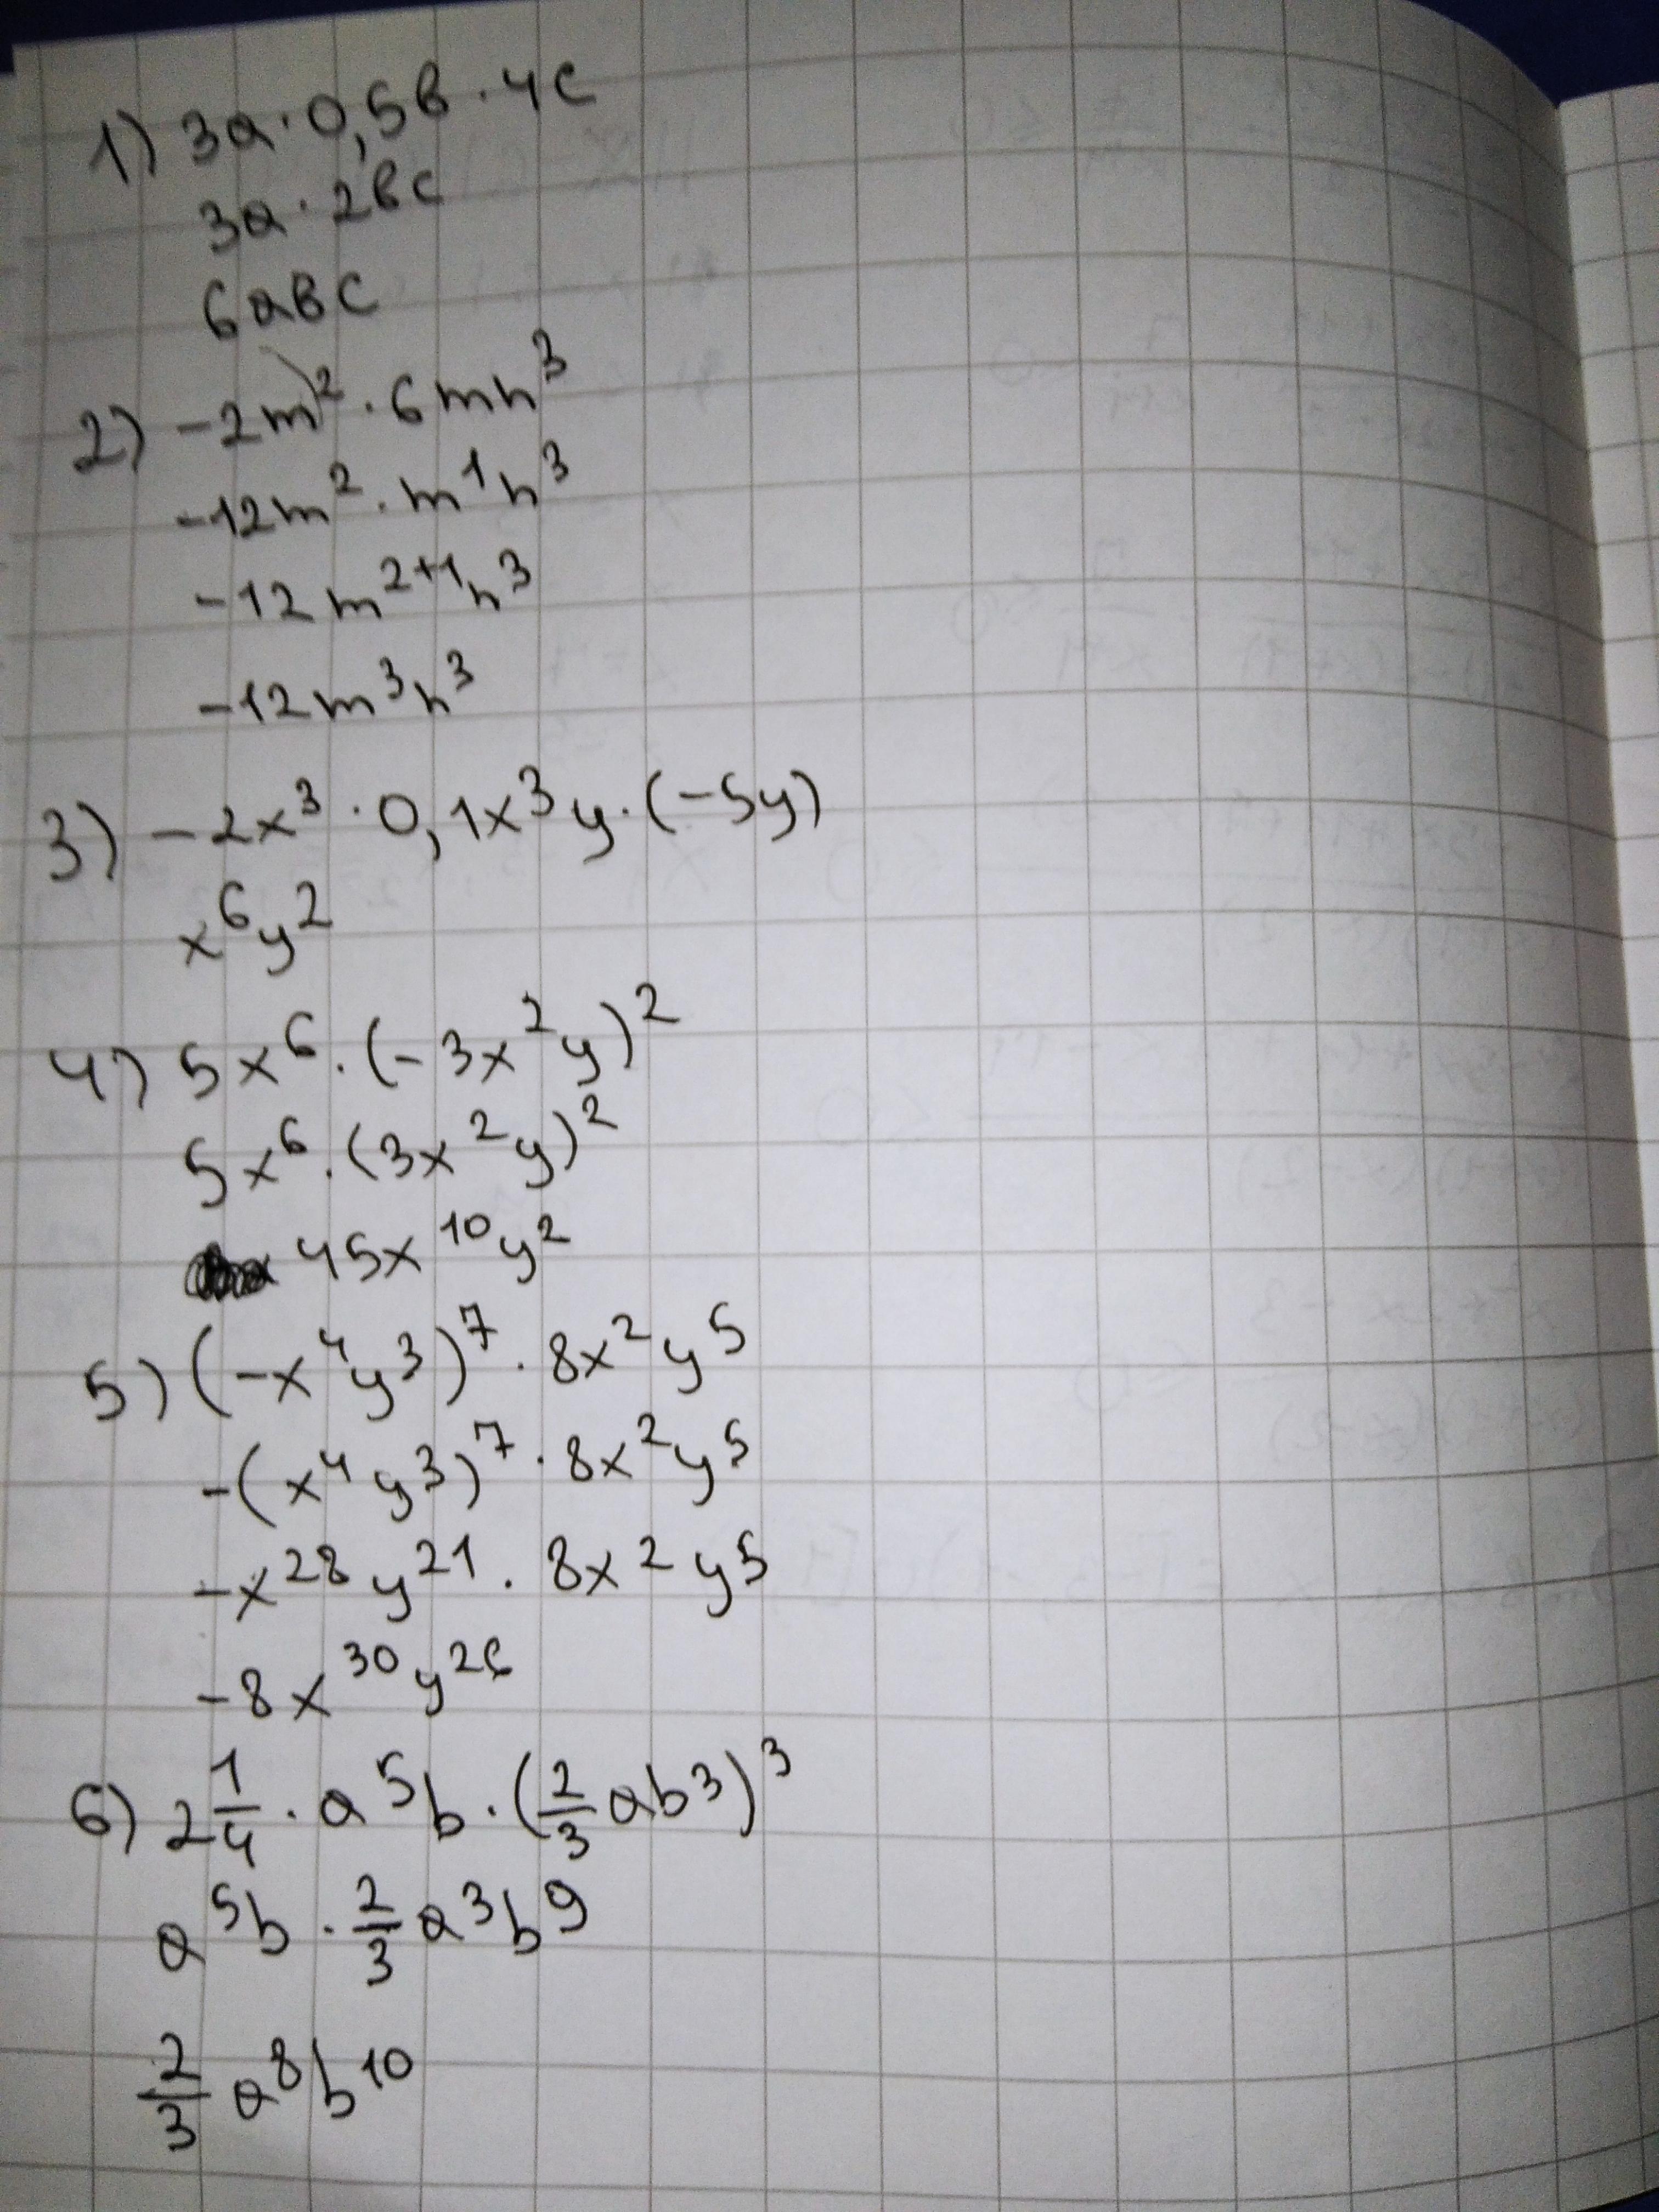 1) 3a · 0,5b · 4c
3a · 2bc
6abc
2) -2m² · 6mn³
-12m² · m¹n³
-12m²⁺¹n³
-12m³n³
3) -2x³ · 0,1x³y · (-5y)
x⁶y²
4) 5x⁶ · (-3x²y)²
5x⁶ · (3x²y)²
45x¹⁰y²
5) (-x⁴y³)⁷ · 8x²y⁵
-(x⁴y³)⁷ · 8x²y⁵
-x²⁸y²¹ · 8x²y⁵
-8x³⁰y²⁶
6) 2 1/4 · a⁵b · (2/3 ab³)³
a⁵b · 2/3 a³b⁹
2/3 a⁸b¹⁰